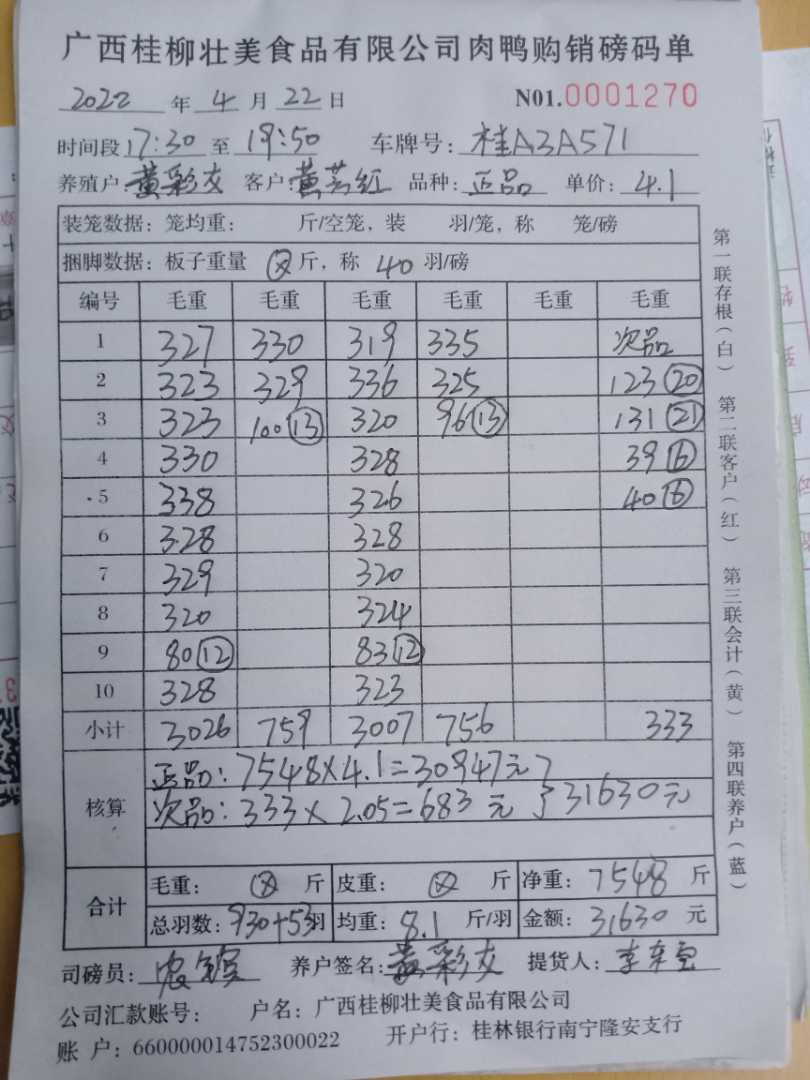 广西桂柳壮美食品有限公司肉鸭购销磅码单
2022 年 4 月 22 日 N01.0001270
时间段 17:30 至 19:50 车牌号: 桂A3A571
养殖户 黄彩友 客户: 黄芬红 品种: 正品 单价: 4.1
装笼数据: 笼均重: 斤/空笼, 装 羽/笼, 称 笼/磅
捆脚数据: 板子重量 斤, 称 40 羽/磅
编号 毛重 毛重 毛重 毛重 毛重 毛重
1 327 330 319 335 次品
2 323 329 336 325 123 20
3 323 100 13 320 96 13 131 21
4 330 328 39 6
5 338 326 40 6
6 328 328
7 329 320
8 320 324
9 80 12 83 12
10 328 323
小计 3026 759 3007 756 333
核算 正品: 7548×4.1=30947元
次品: 333×2.05=683元 } 31630元
合计 毛重: 斤 皮重: 斤 净重: 7548 斤
总羽数: 930+53 羽 均重: 8.1 斤/羽 金额: 31630 元
司磅员: 养户签名: 黄彩友 提货人:
公司汇款账号: 户名: 广西桂柳壮美食品有限公司
账 户: 660000014752300022 开户行: 桂林银行南宁隆安支行
第一联存根(白) 第二联客户(红) 第三联会计(黄) 第四联养户(蓝)